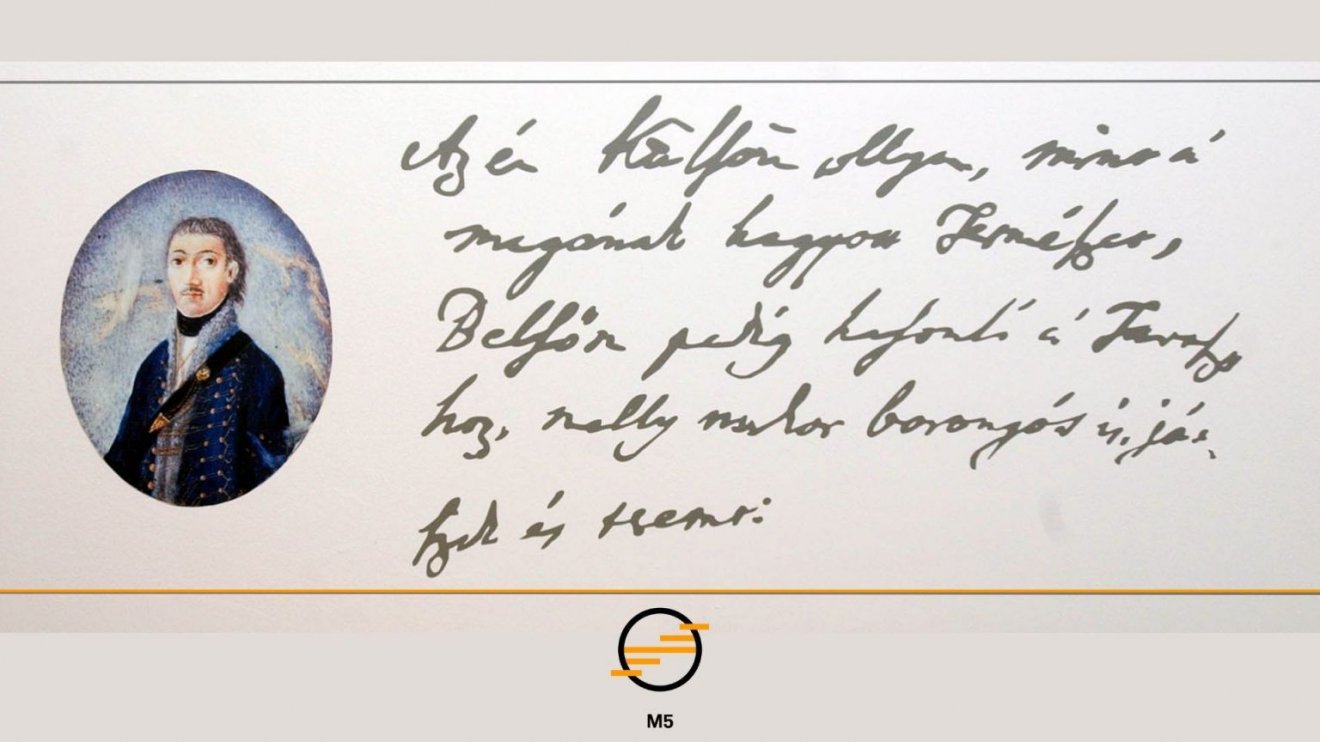 Az én Külsőm ollyan, mint a'
magának hagyott Természet,
Belsőm pedig hasonló a' Tavasz
hoz, melly mikor borongós is, já-
szik és teremt:
M5